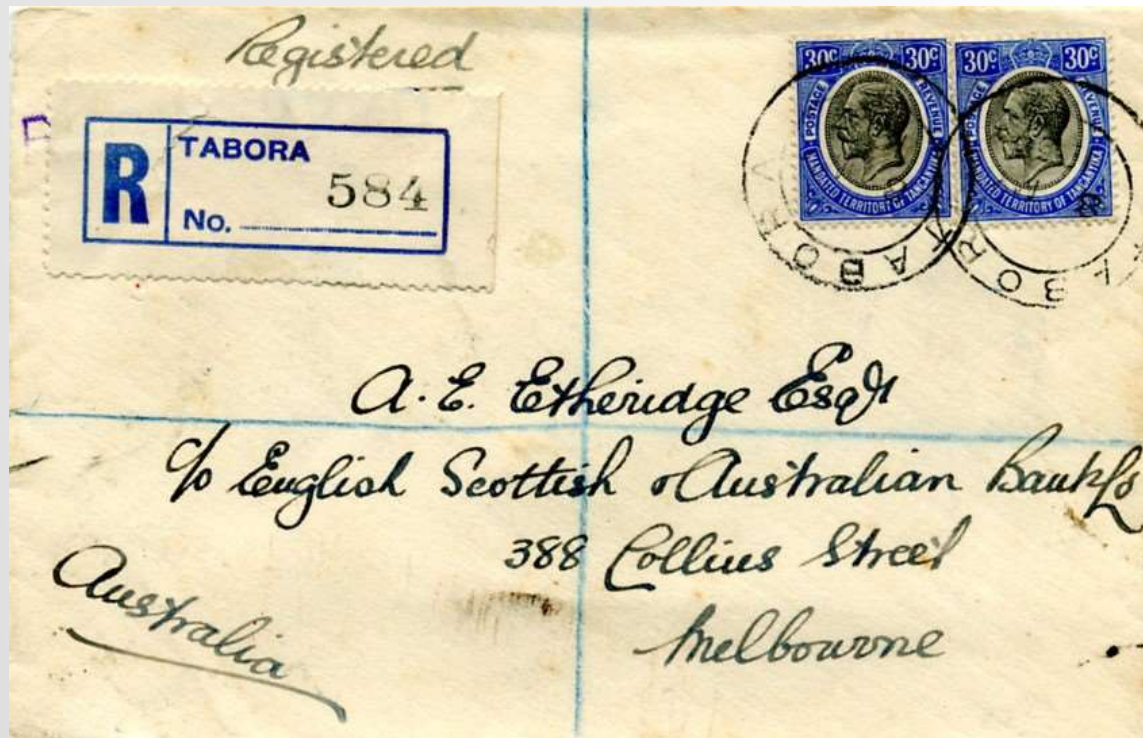 Registered
R
TABORA
584
No.
30c 30c
POSTAGE REVENUE
MANDATED TERRITORY OF TANGANYIKA
30c 30c
POSTAGE REVENUE
MANDATED TERRITORY OF TANGANYIKA
TABORA
TABORA
A. E. Etheridge Esqr
c/o English Scottish & Australian Bank Ld
388 Collins Street
Australia
Melbourne